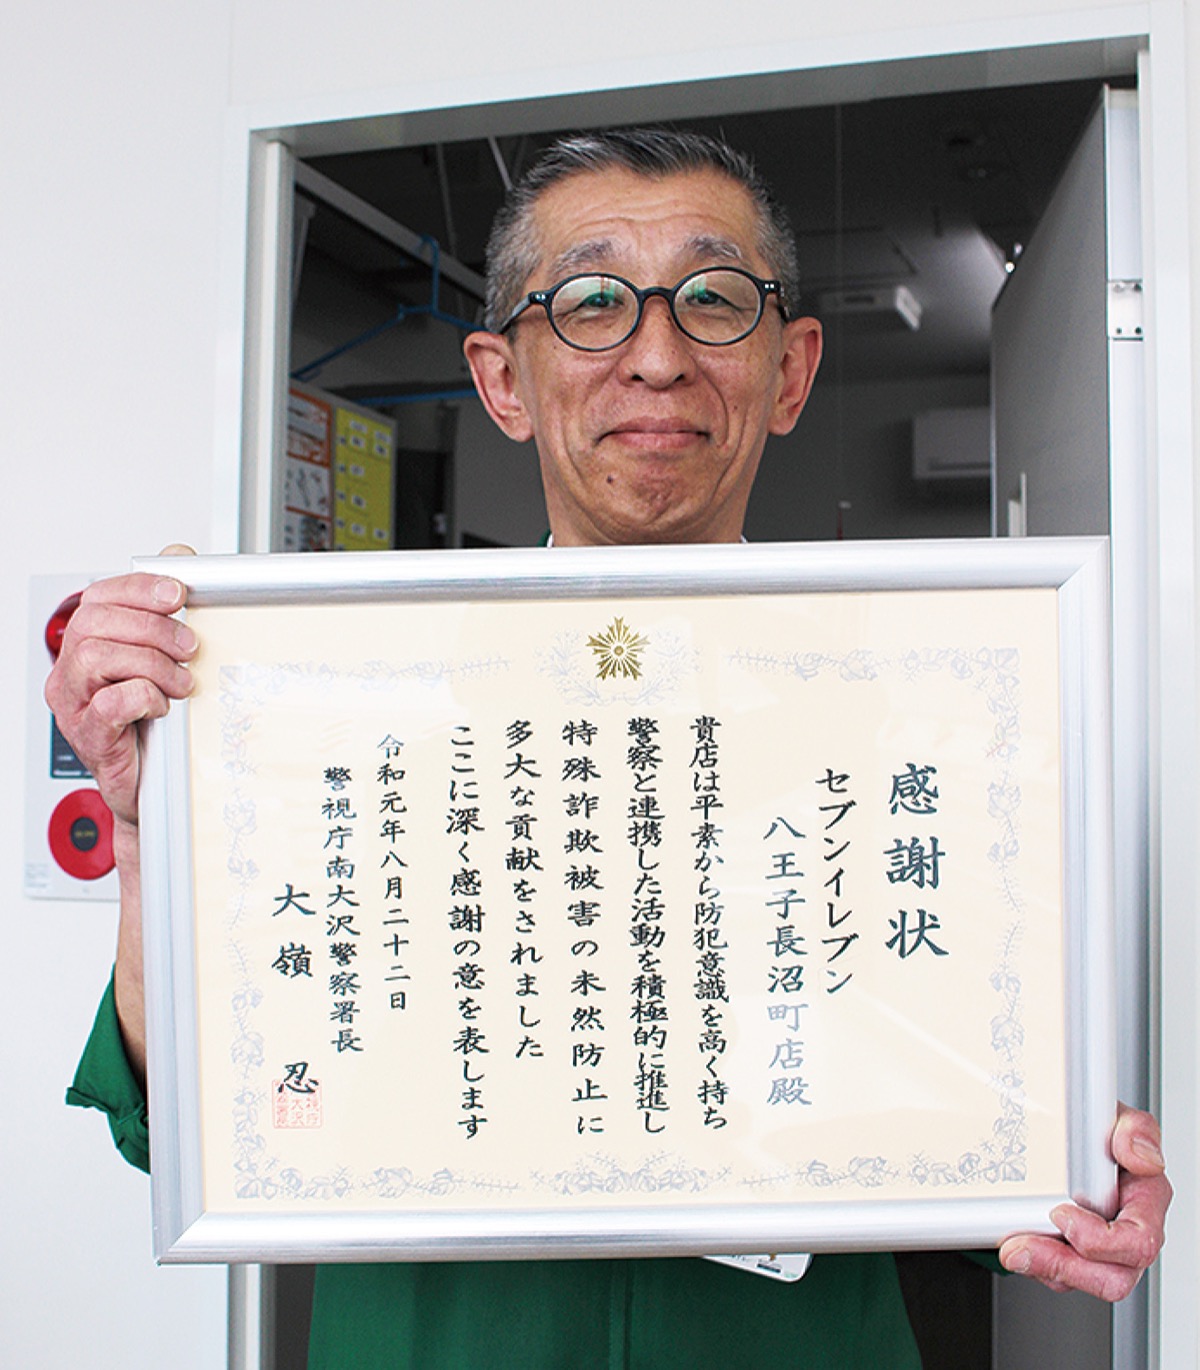 感謝状
セブンイレブン
八王子長沼町店殿
貴店は平素から防犯意識を高く持ち
警察と連携した活動を積極的に推進し
特殊詐欺被害の未然防止に
多大な貢献をされました
ここに深く感謝の意を表します
令和元年八月二十二日
警視庁南大沢警察署長
大嶺忍